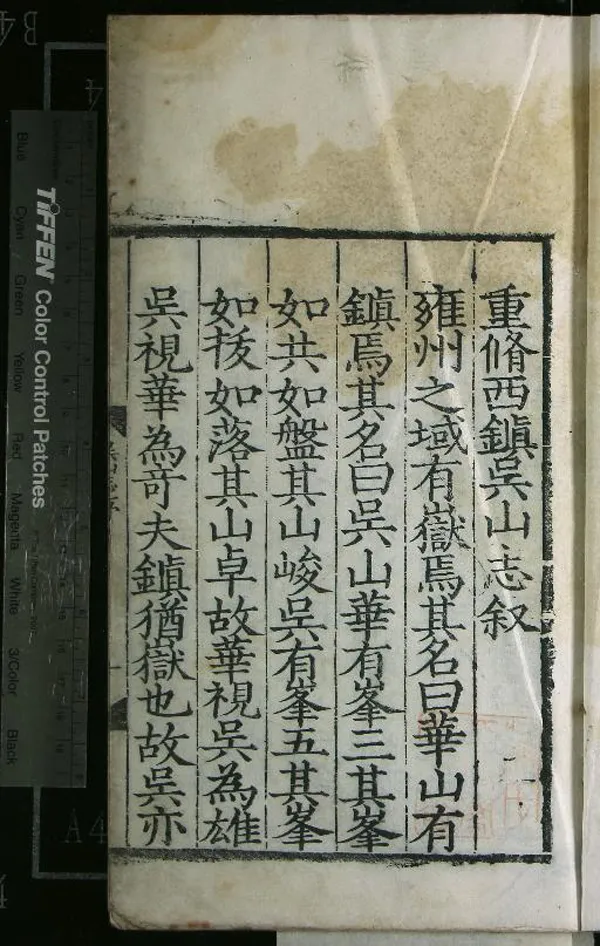 重脩西鎮吳山志叙
雍州之域有嶽焉其名曰華山有
鎮焉其名曰吳山華有峯三其峯
如共如盤其山峻吳有峯五其峯
如拔如落其山卓故華視吳為雄
吳視華為竒夫鎮猶嶽也故吳亦
TIFFEN Color Control Patches
Blue Cyan Green Yellow Red Magenta White 3/Color Black
B4
A4